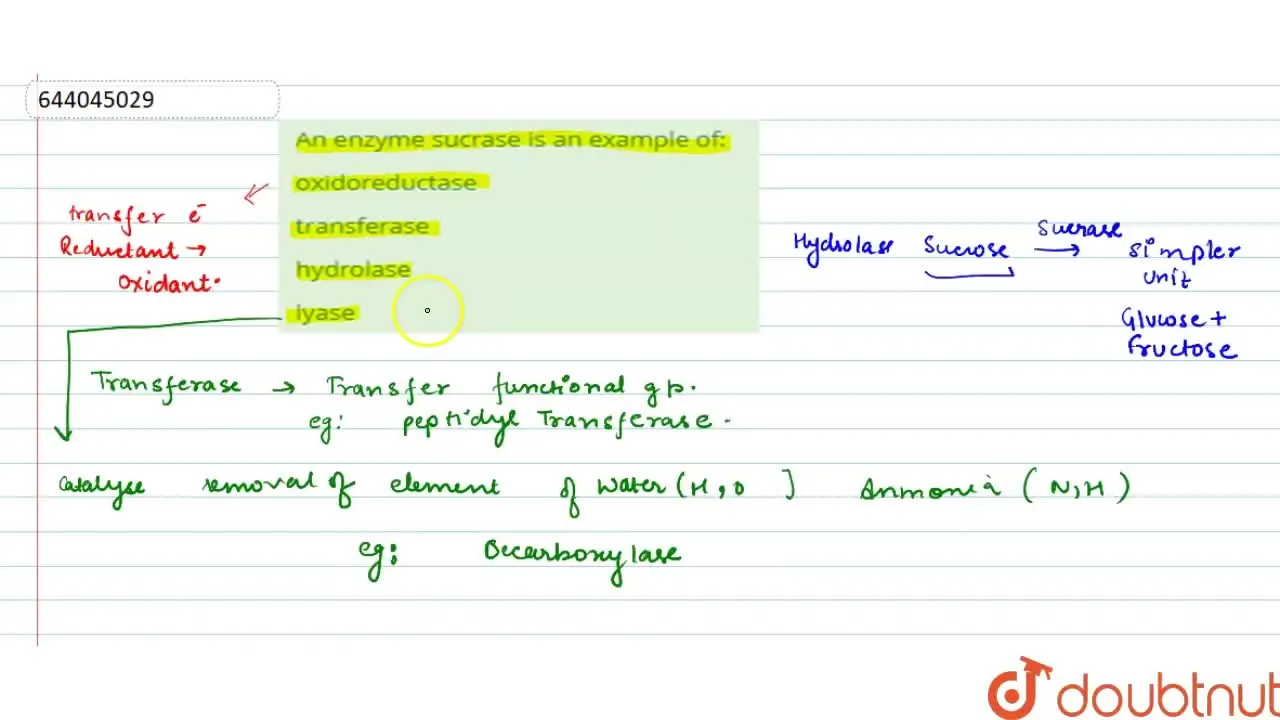 644045029
An enzyme sucrase is an example of:
oxidoreductase
transferase
hydrolase
lyase
transfer e-
Reductant →
Oxidant.
Hydrolase Sucrose Sucrase → Simpler
Unit
Glucose +
Fructose
Transferase → Transfer functional gp.
eg: peptidyl Transferase.
Catalyse removal of element of Water (H, O ] Ammonia (N, H)
eg: Decarboxylase
doubtnut